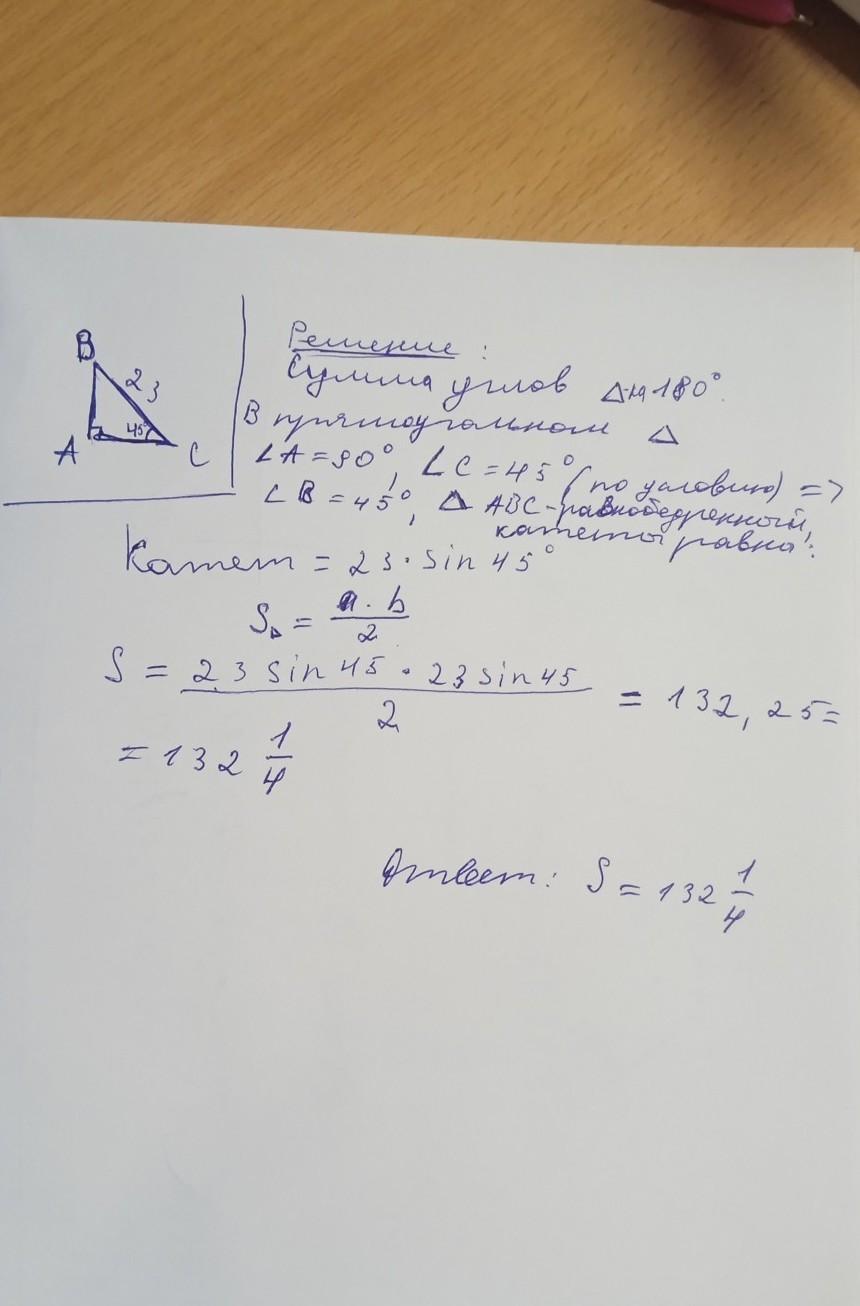 B
23
45°
A
C
Решение:
Сумма углов Δ-ка 180°.
В прямоугольном Δ
∠A = 90°, ∠C = 45° (по условию) =>
∠B = 45°, Δ ABC - равнобедренный,
катеты равны:
Катет = 23 · sin 45°
S▵ = a · b / 2
S = 23 sin 45 · 23 sin 45 / 2 = 132,25 =
= 132 1/4
Ответ: S = 132 1/4